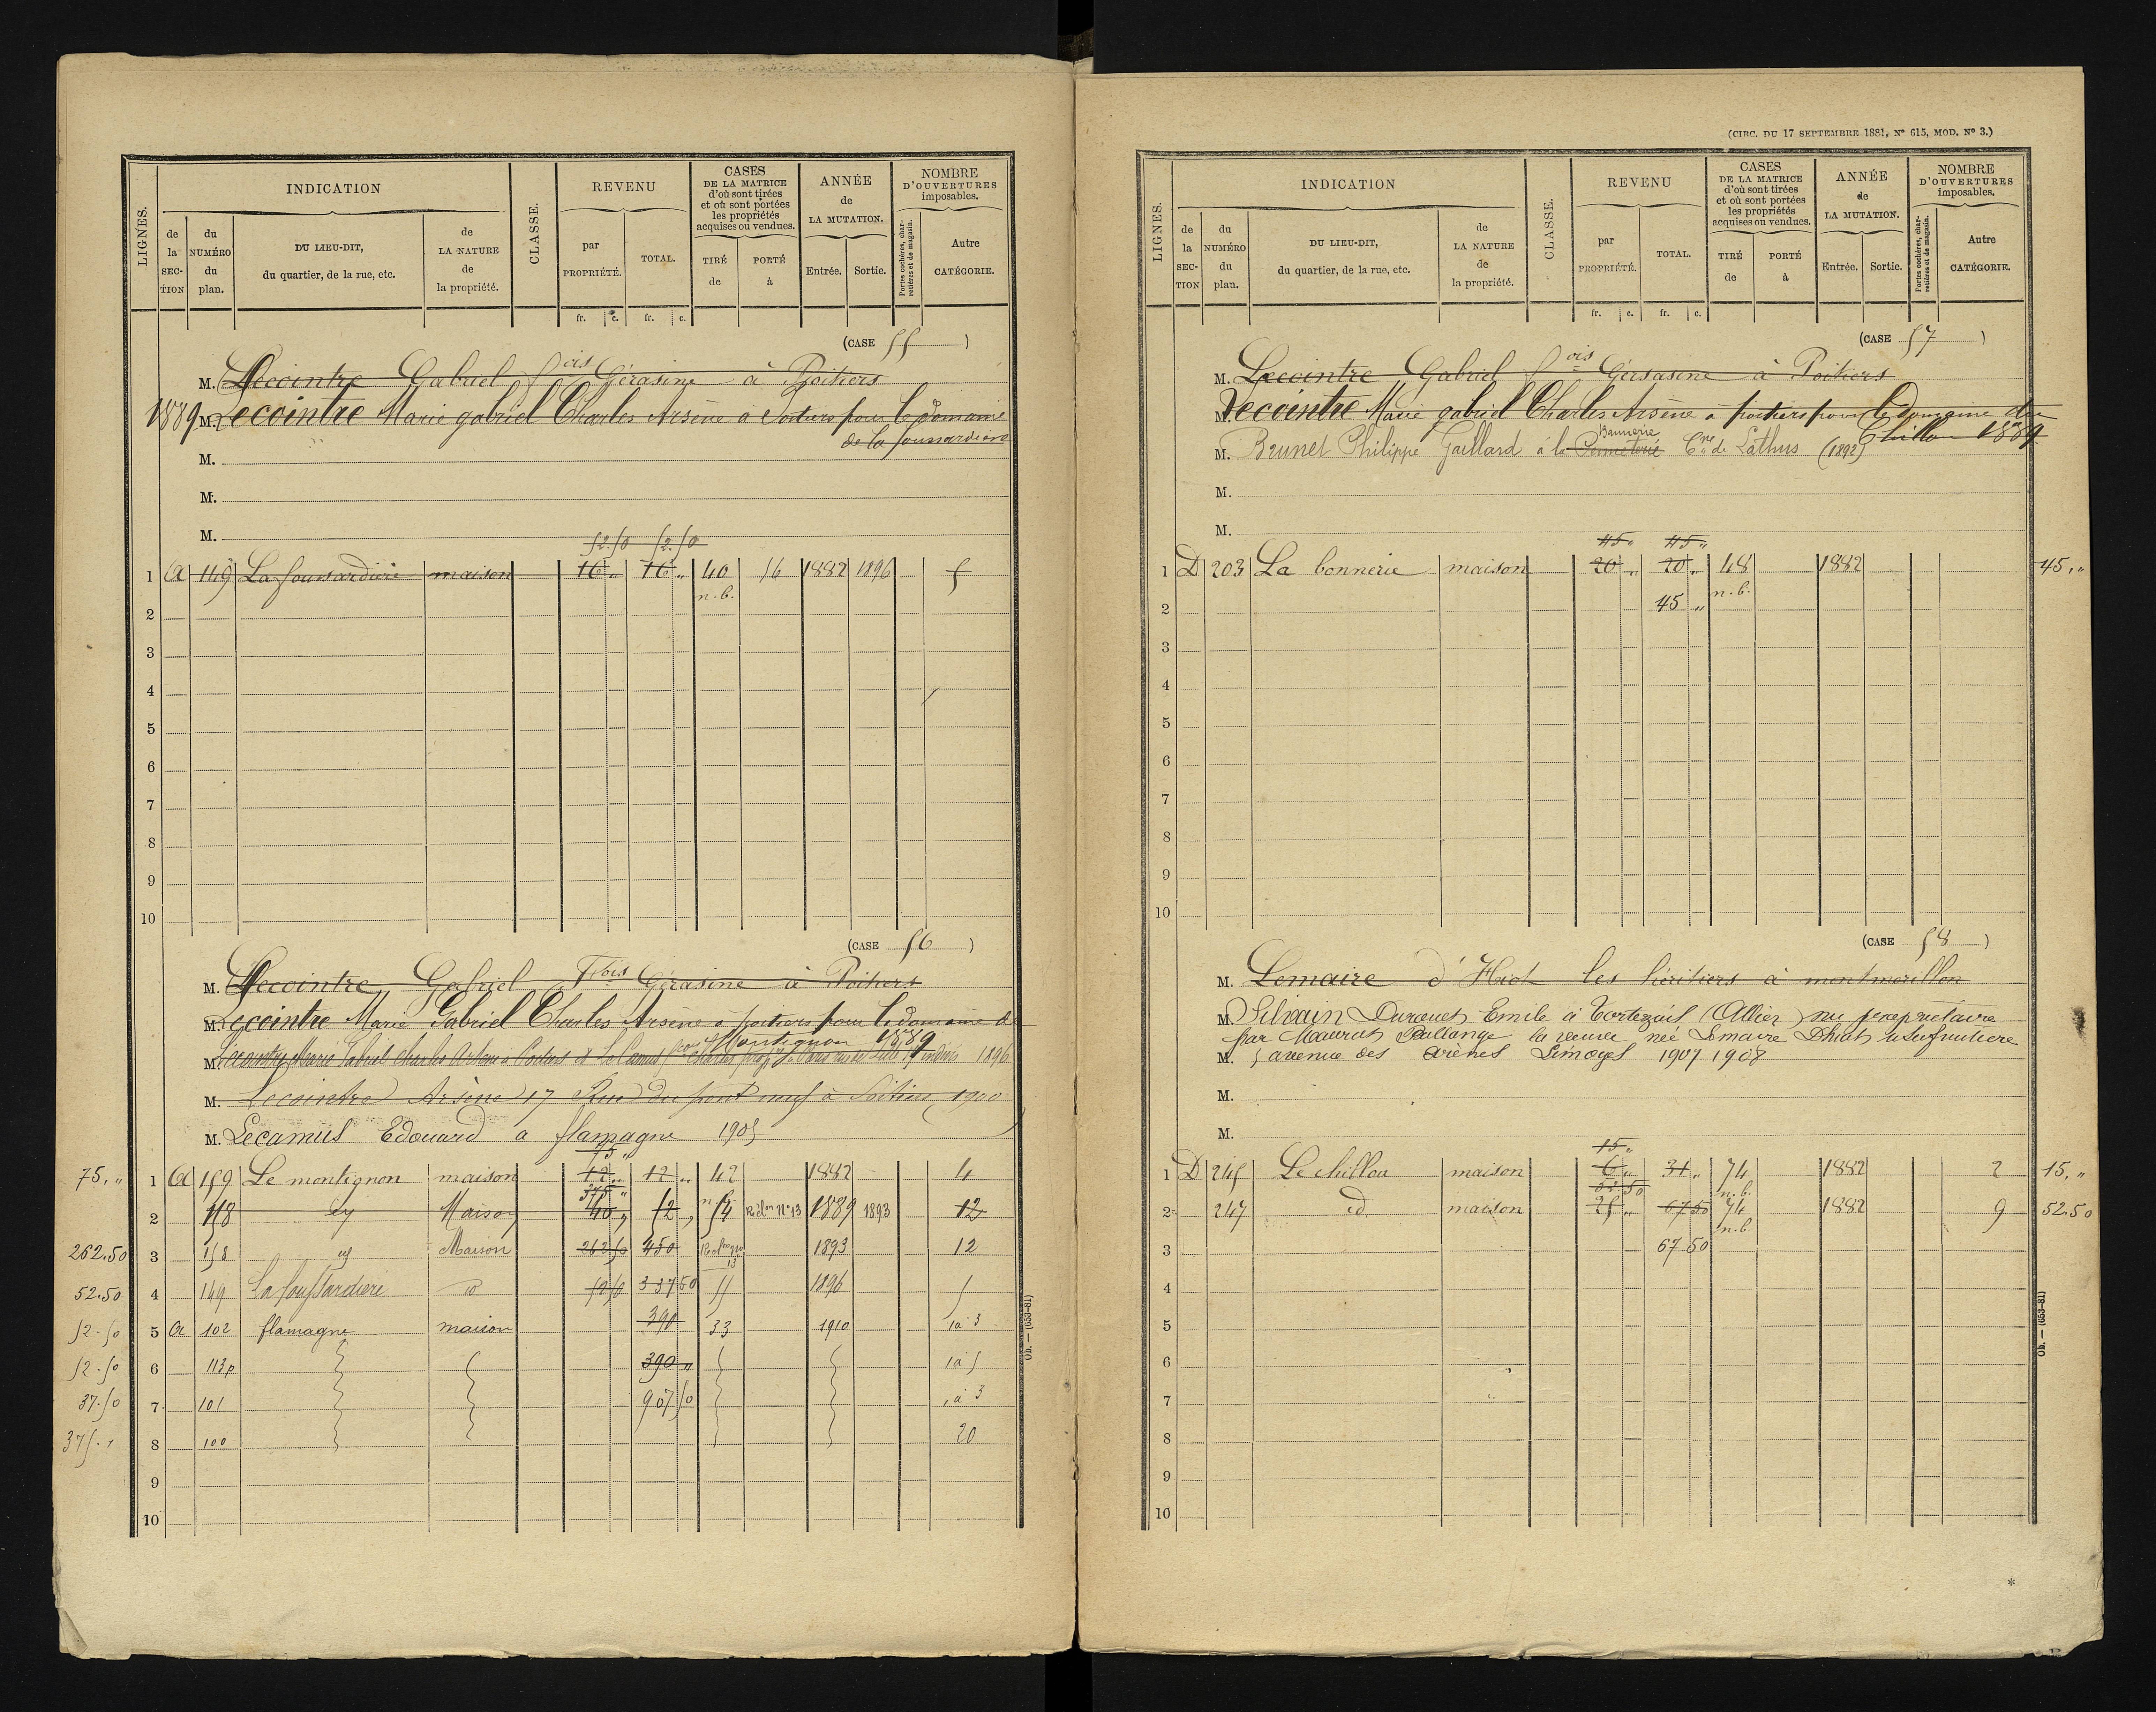 LIGNES.
INDICATION
de la SECTION
du NUMÉRO du plan.
DU LIEU-DIT, du quartier, de la rue, etc.
de LA NATURE de la propriété.
CLASSE.
REVENU
par PROPRIÉTÉ.
TOTAL.
CASES DE LA MATRICE d'où sont tirées et où sont portées les propriétés acquises ou vendues.
TIRÉ de
PORTÉ à
ANNÉE de LA MUTATION.
Entrée.
Sortie.
NOMBRE D'OUVERTURES imposables.
Portes cochères, charretières et de magasin.
Autre CATÉGORIE.
fr. c. fr. c.
(CASE 55)
M. Lecointre Gabriel fois Gérasine à Poitiers
1889 M. Lecointre Marie gabriel Charles Arsène a Poitiers pour le domaine
de la foussardiere
M.
M.
M.
52.50 52.50
1 A 149 La foussardiere maison 16 „ 16 „ 40 56 1882 1896 5
n.b.
2
3
4
5
6
7
8
9
10
(CASE 56)
M. Lecointre Gabriel Fois Gérasine à Poitiers
M. Lecointre Marie Gabriel Charles Arsene a poitiers pour le domaine de
Montignon 1889
M. Lecointre Marie Gabriel Charles Arsene a Poitiers et Le Camus Charles 1896
M. Lecointre Arsène 17 Rue du pont neuf à Poitiers 1900
M. Lecamus Edouard a flamagne 1905
75 „
75. „ 1 A 159 Le montignon maison 12 „ 12 „ 42 1882 4
375 „ n.b.
2 158 id Maison 40 „ 52 „ 54 Récl.on N°13 1889 1893 12
262.50 3 158 id Maison 262 50 450 13 1893 12
52.50 4 149 La foussardiere id 50 50 337 50 55 1896 5
52.50 5 A 102 flamagne maison 390 33 1910 1à 3
52.50 6 113p 390 „ 1à 5
37.50 7 101 907 50 1à 3
375. „ 8 100 20
9
10
Ob. — (653-81)
(CIRC. DU 17 SEPTEMBRE 1881, N° 615, MOD. N° 3.)
LIGNES.
INDICATION
de la SECTION
du NUMÉRO du plan.
DU LIEU-DIT, du quartier, de la rue, etc.
de LA NATURE de la propriété.
CLASSE.
REVENU
par PROPRIÉTÉ.
TOTAL.
CASES DE LA MATRICE d'où sont tirées et où sont portées les propriétés acquises ou vendues.
TIRÉ de
PORTÉ à
ANNÉE de LA MUTATION.
Entrée.
Sortie.
NOMBRE D'OUVERTURES imposables.
Portes cochères, charretières et de magasin.
Autre CATÉGORIE.
fr. c. fr. c.
(CASE 57)
M. Lecointre Gabriel fois Gérsasine à Poitiers
M. Lecointre Marie gabriel Charles Arsène a poitiers pour le domaine du
Chillou 1889
Bannerie
M. Brunet Philippe Gaillard à la Cne de Lathus (1892)
M.
M.
45 „ 45 „
1 D 203 La bonnerie maison 20 „ 20 „ 48 1882 45. „
n.b.
2 45 „
3
4
5
6
7
8
9
10
(CASE 58)
M. Lemaire d'Hiot les héritiers à montmorillon
M. Silvain Durouet Emile à Tortezais (Allier) nu propriétaire
par Maurat Ballange la veuve née Lemaire Dhiot usufruitiere
M. 5 avenue des Arènes Limoges 1907 1908
M.
M.
15 „
1 D 245 Le chillou maison 6 „ 31 „ 74 1882 2 15. „
52.50 n.b.
2 247 id maison 25 „ 67 50 74 1882 9 52.50
n.b
3 67 50
4
5
6
7
8
9
10
Ob. — (653-81)
*